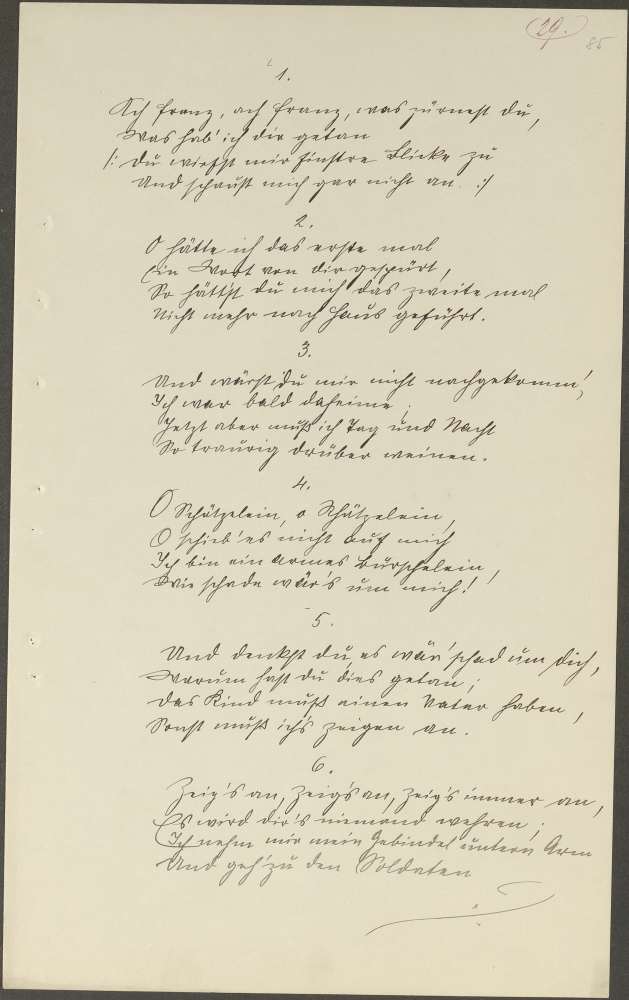 29.
85
1.
Ach Franz, ach Franz, was zürnest du,
Was hab' ich dir getan
/: Du wirfst mir finstre Blicke zu
Und schaust mich gar nicht an. :/
2.
O hätte ich das erste mal
Ein Wort von dir gespürt,
So hätt'st du mich das zweite mal
Nicht mehr nach Haus geführt.
3.
Und wärst du mir nicht nachgekomm',
Ich war bald daheime;
Jetzt aber muß ich Tag und Nacht
So traurig drüber weinen.
4.
O Schätzelein, o Schätzelein,
O schieb' es nicht auf mich
Ich bin ein armes Bürschelein,
Wie schade wär's um mich!
5.
Und denkst du, es wär' schad um dich,
Warum hast du dies getan;
Das Kind muß einen Vater haben,
Sonst muß ich's zeigen an.
6.
Zeig's an, zeig's an, zeig's immer an,
Es wird dir's niemand wehren;
Ich nehm mir mein Gebindel untern Arm
Und geh' zu den Soldaten